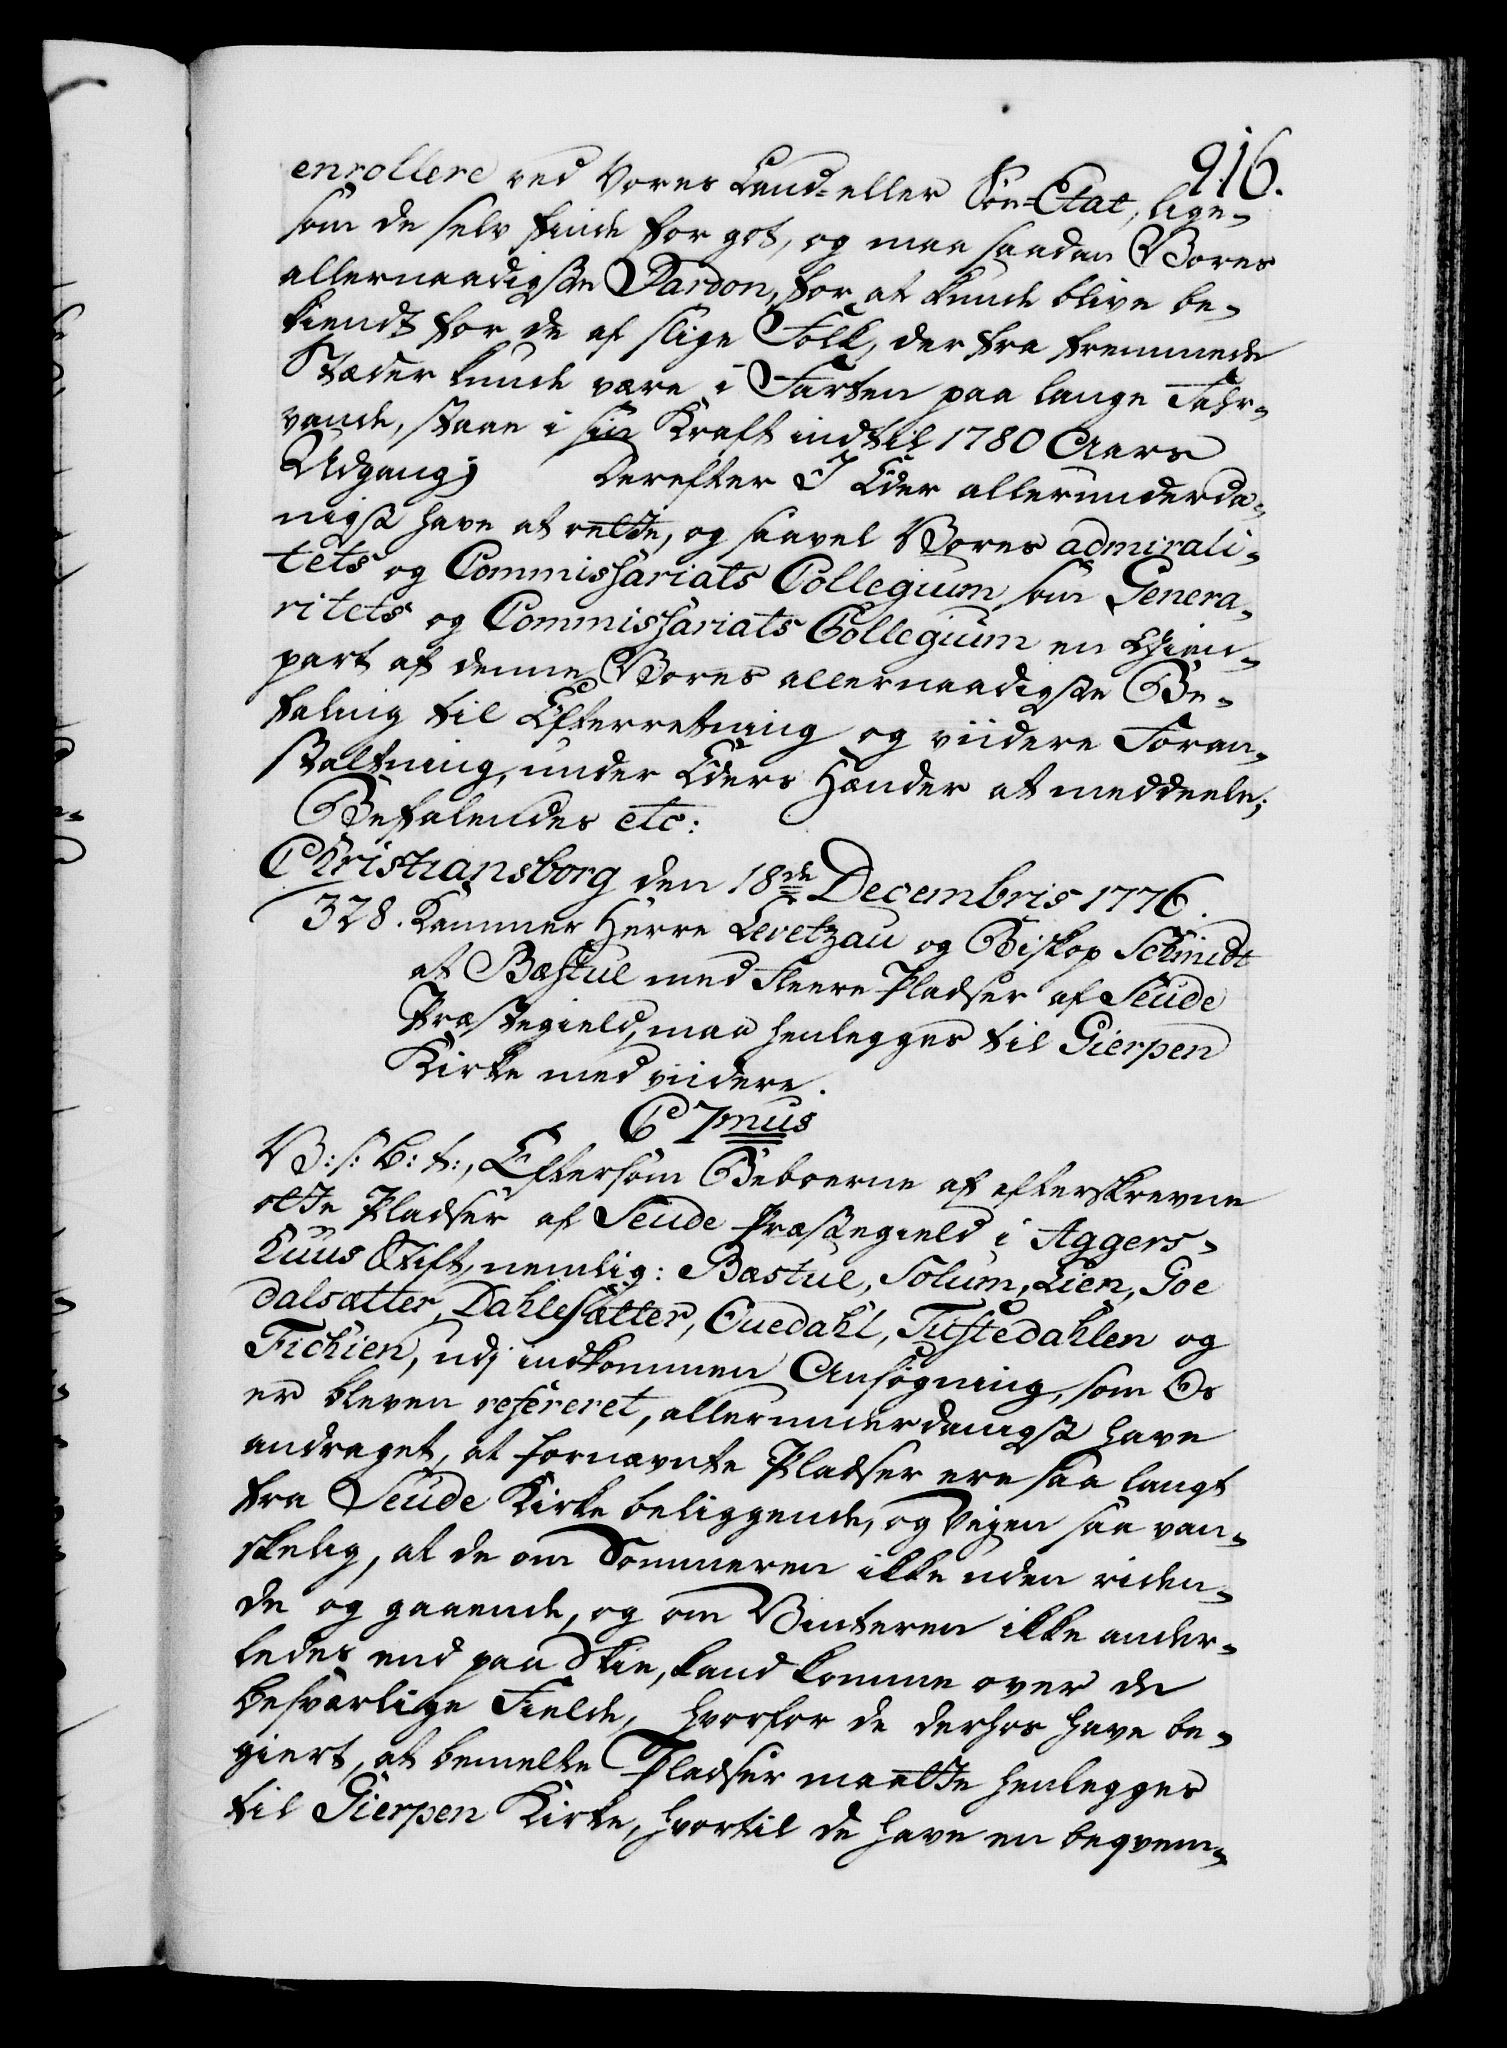 916.
enrollere ved Vores Land- eller Söe-Etat, lige-
som de selv finde for got, og maa saadan Vores
allernaadigste Pardon, for at kunde blive be-
kiendt for de af slige Folk, der fra fremmede
Stæder kunde være i Farten paa lange Fahr-
vande, staae i sin Kraft indtil 1780 Aars
Udgang; Derefter I Eder allerunderda-
nigst have at rette, og saavel Vores admirali-
tets og Commissariats Collegium som Genera-
ritets og Commissariats Collegium en Gien-
part af denne Vores allernaadigste Be-
faling til Efterretning og viidere Foran-
staltning, under Eders Hænder at meddeele;
Befalendes etc:
Christiansborg den 18de Decembris 1776.
328. Kammer Herre Levetzau og Biskop Schmidt
at Bæstul med fleere Pladser af Seude
Præstegield, maa henlegges til Gierpen
Kirke med viidere.
C 7mus
V: s: b: t:, Eftersom Beboerne af efterskrevne
otte Pladser af Seude Præstegield i Aggers-
huus Stift, nemlig: Bæstul, Solum, Lien, Goe
dalsætter, Dahlesætter, Ouedahl, Tuftedahlen og
Fichien, udj indkommen Ansøgning, som Os
er bleven refereret, allerunderdanigst have
andraget, at fornævnte Pladser ere saa langt
fra Seude Kirke beliggende, og Vejen saa van-
skelig, at de om Sommeren ikke uden riden-
de og gaaende, og om Vinteren ikke ander-
ledes end paa Skie, kand komme over de
besværlige Fielde, hvorfor de derhos have be-
giert, at bemelte Pladser maatte henlegges
til Gierpen Kirke, hvortil de have en beqvem-